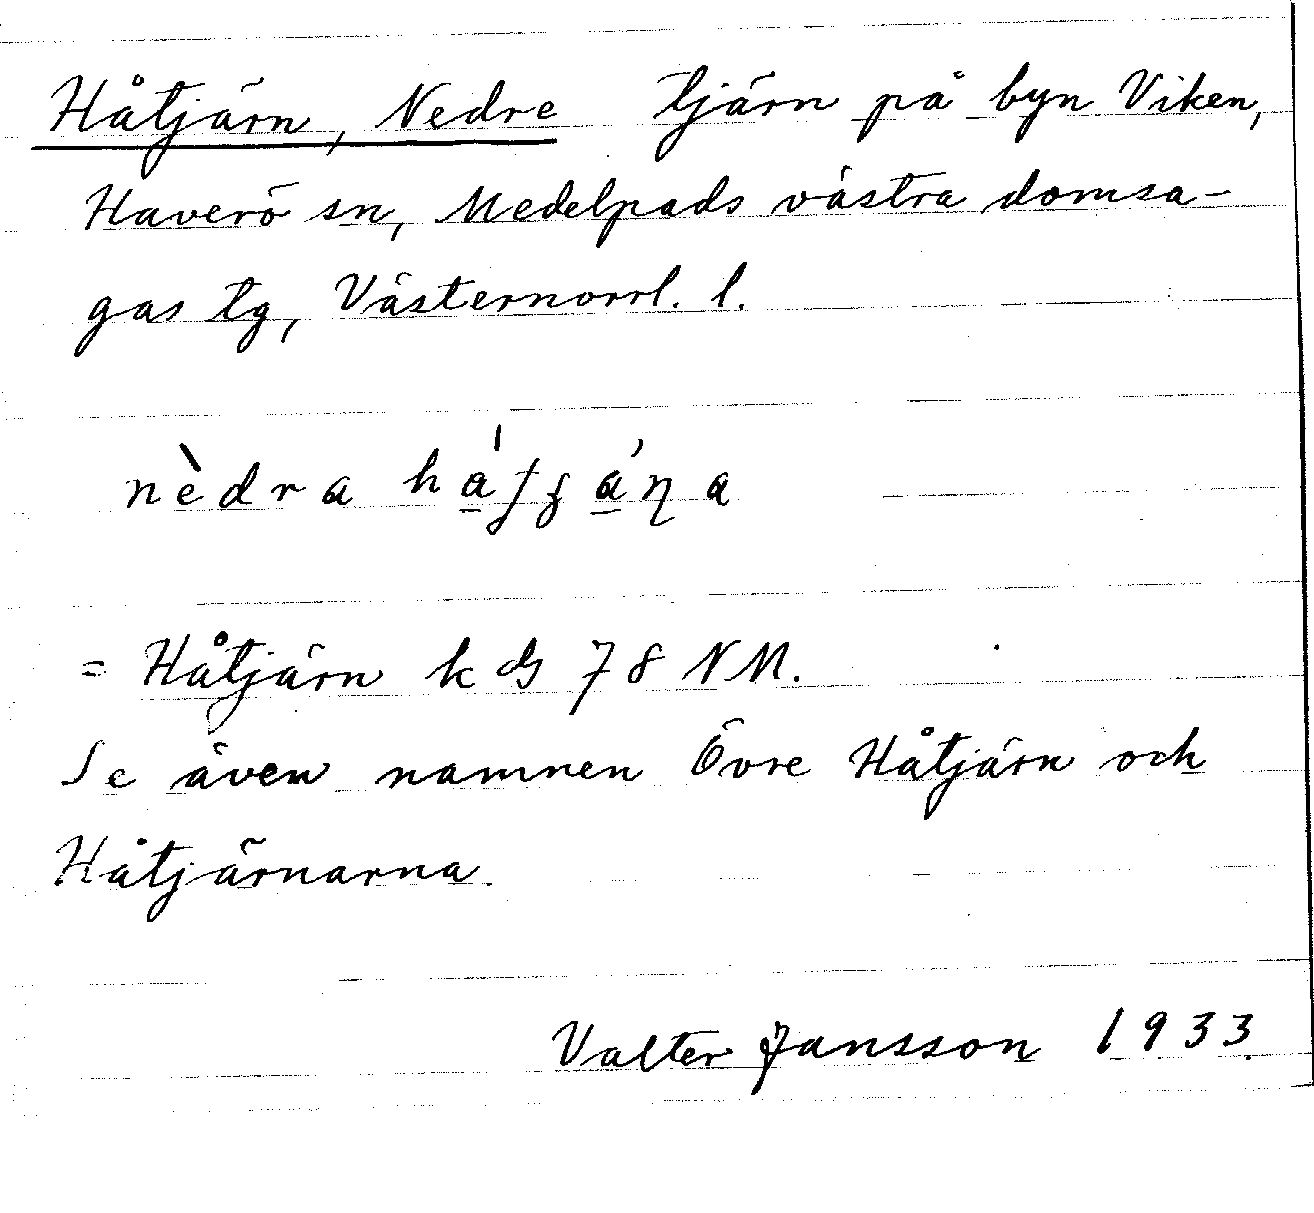 Håtjärn, Nedre tjärn på byn Viken,
Haverö sn, Medelpads västra domsa-
gas tg, Västernorrl. l.
nèdra
= Håtjärn k ds 78 NM.
Se även namnen Övre Håtjärn och
Håtjärnarna.
Valter Jansson 1933.